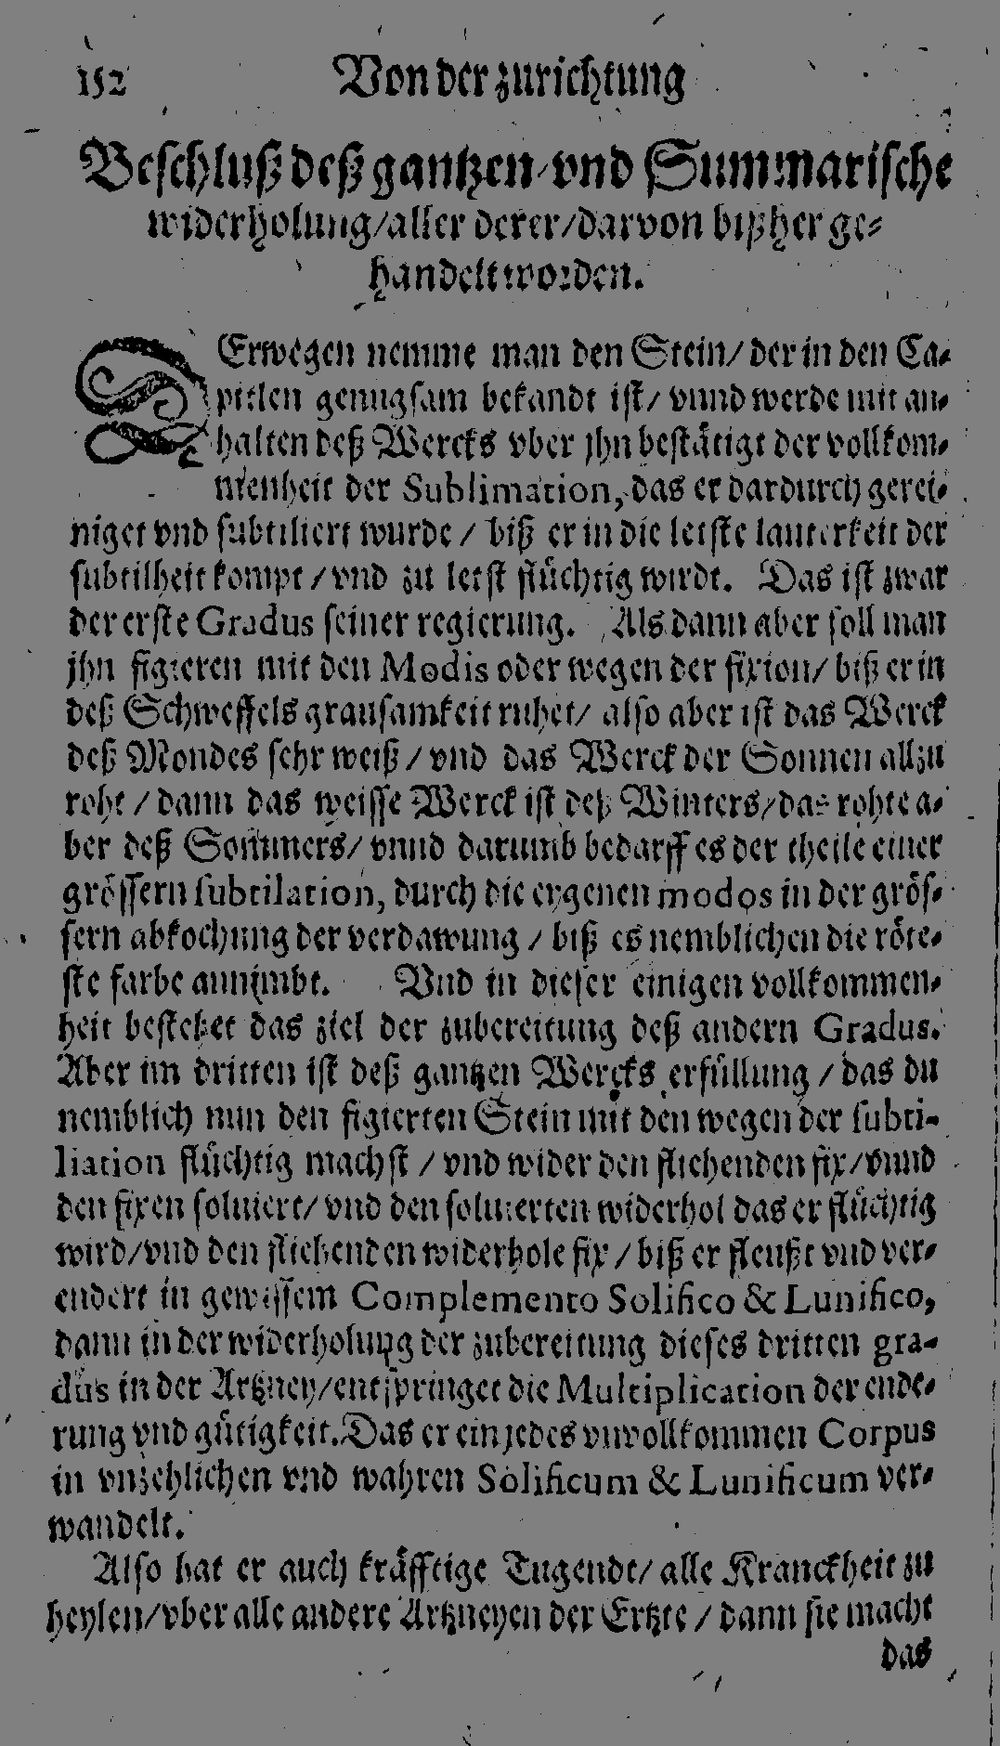 152 Von der zurichtung
Beschluß deß gantzen/ vnd Summarische
widerholung/aller derer/darvon bißher ge-
handelt worden.
DErwegen nemme man den Stein/ der in den Ca-
pitlen genugsam bekandt ist/ vnnd werde mit an-
halten deß Wercks vber jhn bestätigt der vollkom-
menheit der Sublimation, das er dardurch gerei-
niget vnd subtiliert wurde / biß er in die letste lauterkeit der
subtilheit kompt / vnd zu letst flüchtig wirdt. Das ist zwar
der erste Gradus seiner regierung. Als dann aber soll man
jhn figieren mit den Modis oder wegen der fixion/ biß er in
deß Schweffels grausamkeit ruhet/ also aber ist das Werck
deß Mondes sehr weiß / vnd das Werck der Sonnen allzu
roht / dann das weisse Werck ist deß Winters/das rohte a-
ber deß Sommers/ vnnd darumb bedarff es der theile einer
grössern subtilation, durch die eygenen modos in der grös-
sern abkochung der verdawung / biß es nemblichen die röte-
ste farbe annimbt. Vnd in dieser einigen vollkommen-
heit bestehet das ziel der zubereitung deß andern Gradus.
Aber im dritten ist deß gantzen Wercks erfüllung / das du
nemblich nun den figierten Stein mit den wegen der subti-
liation flüchtig machst / vnd wider den fliehenden fix/vnnd
den fixen solviert/ vnd den solvierten widerhol das er flüchtig
wird/vnd den fliehenden widerhole fix / biß er fleußt vnd ver-
endert in gewissem Complemento Solifico & Lunifico,
dann in der widerholung der zubereitung dieses dritten gra-
dus in der Artzney/entspringet die Multiplication der ende-
rung vnd gütigkeit. Das er ein jedes vnvollkommen Corpus
in vnzehlichen vnd wahren Solificum & Lunificum ver-
wandelt.
Also hat er auch kräfftige Tugendt/ alle Kranckheit zu
heylen/vber alle andere Artzneyen der Ertzte / dann sie macht
das